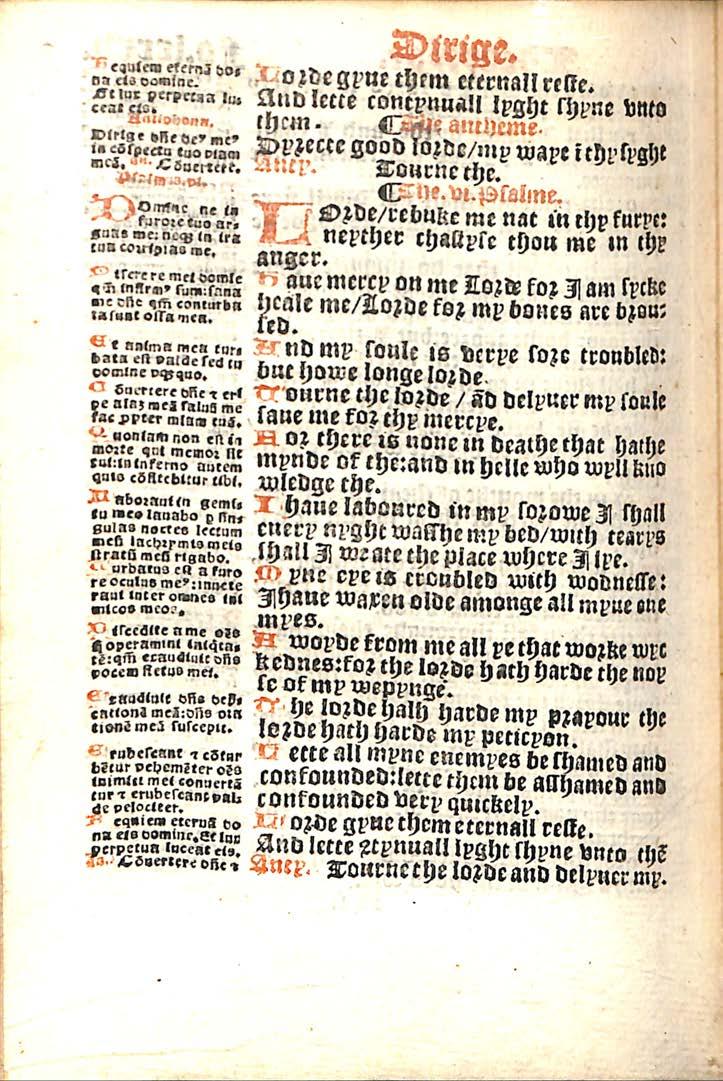 Dirige.
Requiem eternā do-
na eis domine.
Et lux perpetua lu-
ceat eis.
Antiphona.
Dirige dñe deꝰ meꝰ
in cōspectu tuo viam
meā. añ. Cōuertere.
Psalm⁹. vi.
DOmine ne in
furore tuo ar-
guas me: neqꝫ in ira
tua corripias me.
Miserere mei domīe
qm̄ infirmꝰ sum: sana
me dñe qm̄ conturba
ta sunt ossa mea.
Et anima mea tur-
bata est valde sed tu
domine vsqꝫquo.
Cōuertere dñe ⁊ eri
pe aīaꝫ meā saluū me
fac ꝓpter miam tuā.
Quoniam non est in
morte qui memor sit
tui: in inferno autem
quis cōfitebitur tibi.
Laboraui in gemi-
tu meo lauabo ꝑ sin-
gulas noctes lectum
meū lachrymis meis
stratū meū rigabo.
Turbatus est a furo
re oculus meꝰ: inuete
raui inter omnes ini
micos meos.
Discedite a me oēs
qui operamini iniqta-
tē: qm̄ exaudiuit dñs
vocem fletus mei.
Exaudiuit dñs dep̄-
cationē meā: dñs ora
tionē meā suscepit.
Erubescant ⁊ cōtur
bētur vehemēter oēs
inimici mei conuertā
tur ⁊ erubescant val-
de velociter.
Requiem eternā do
na eis domine, Et lux
perpetua luceat eis.
añ. Cōuertere dñe ⁊
Lorde gyue them eternall reste.
And lette contynuall lyght shyne vnto
them. ¶The antheme.
Dyrecte good lorde/my waye ī thy syght
Antep. Tourne the.
¶The. vi. Psalme.
LOrde/rebuke me nat in thy furye:
neyther chastyse thou me in thy
anger.
Haue mercy on me Lorde for I am sycke
heale me/Lorde for my bones are brou-
sed.
And my soule is verye sore troubled:
but howe longe lorde.
Tourne the lorde / ād delyuer my soule
saue me for thy mercye.
For there is none in deathe that hathe
mynde of the: and in helle who wyll kno
wledge the.
I haue laboured in my sorowe I shall
euery nyght wasshe my bed/with tearys
shall I weate the place where I lye.
Myne eye is troubled with wodnesse:
I haue waxen olde amonge all myne ene
myes.
Awoyde from me all ye that worke wyc
kednes: for the lorde hath harde the noy
se of my wepynge.
The lorde hath harde my prayour the
lorde hath harde my peticyon.
Lette all myne enemyes be shamed and
confounded: lette them be asshamed and
confounded very quickely.
Lorde gyue them eternall reste.
And lette ꝯtynuall lyght shyne vnto thē
Antep. Tourne the lorde and delyuer my.